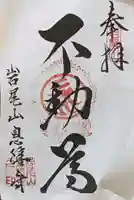 奉拝
不動尊
岩尾山息障寺